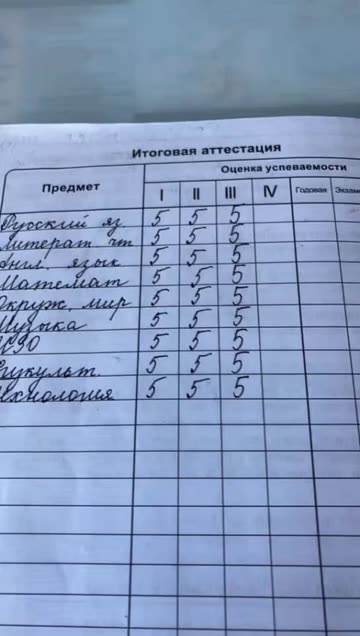 Итоговая аттестация
Предмет Оценка успеваемости
I II III IV Годовая Экзаме
Русский яз 5 5 5
Литерат чт 5 5 5
Англ. язык 5 5 5
Математ 5 5 5
Окруж. мир 5 5 5
Музыка 5 5 5
ИЗО 5 5 5
Физкульт. 5 5 5
Технология 5 5 5